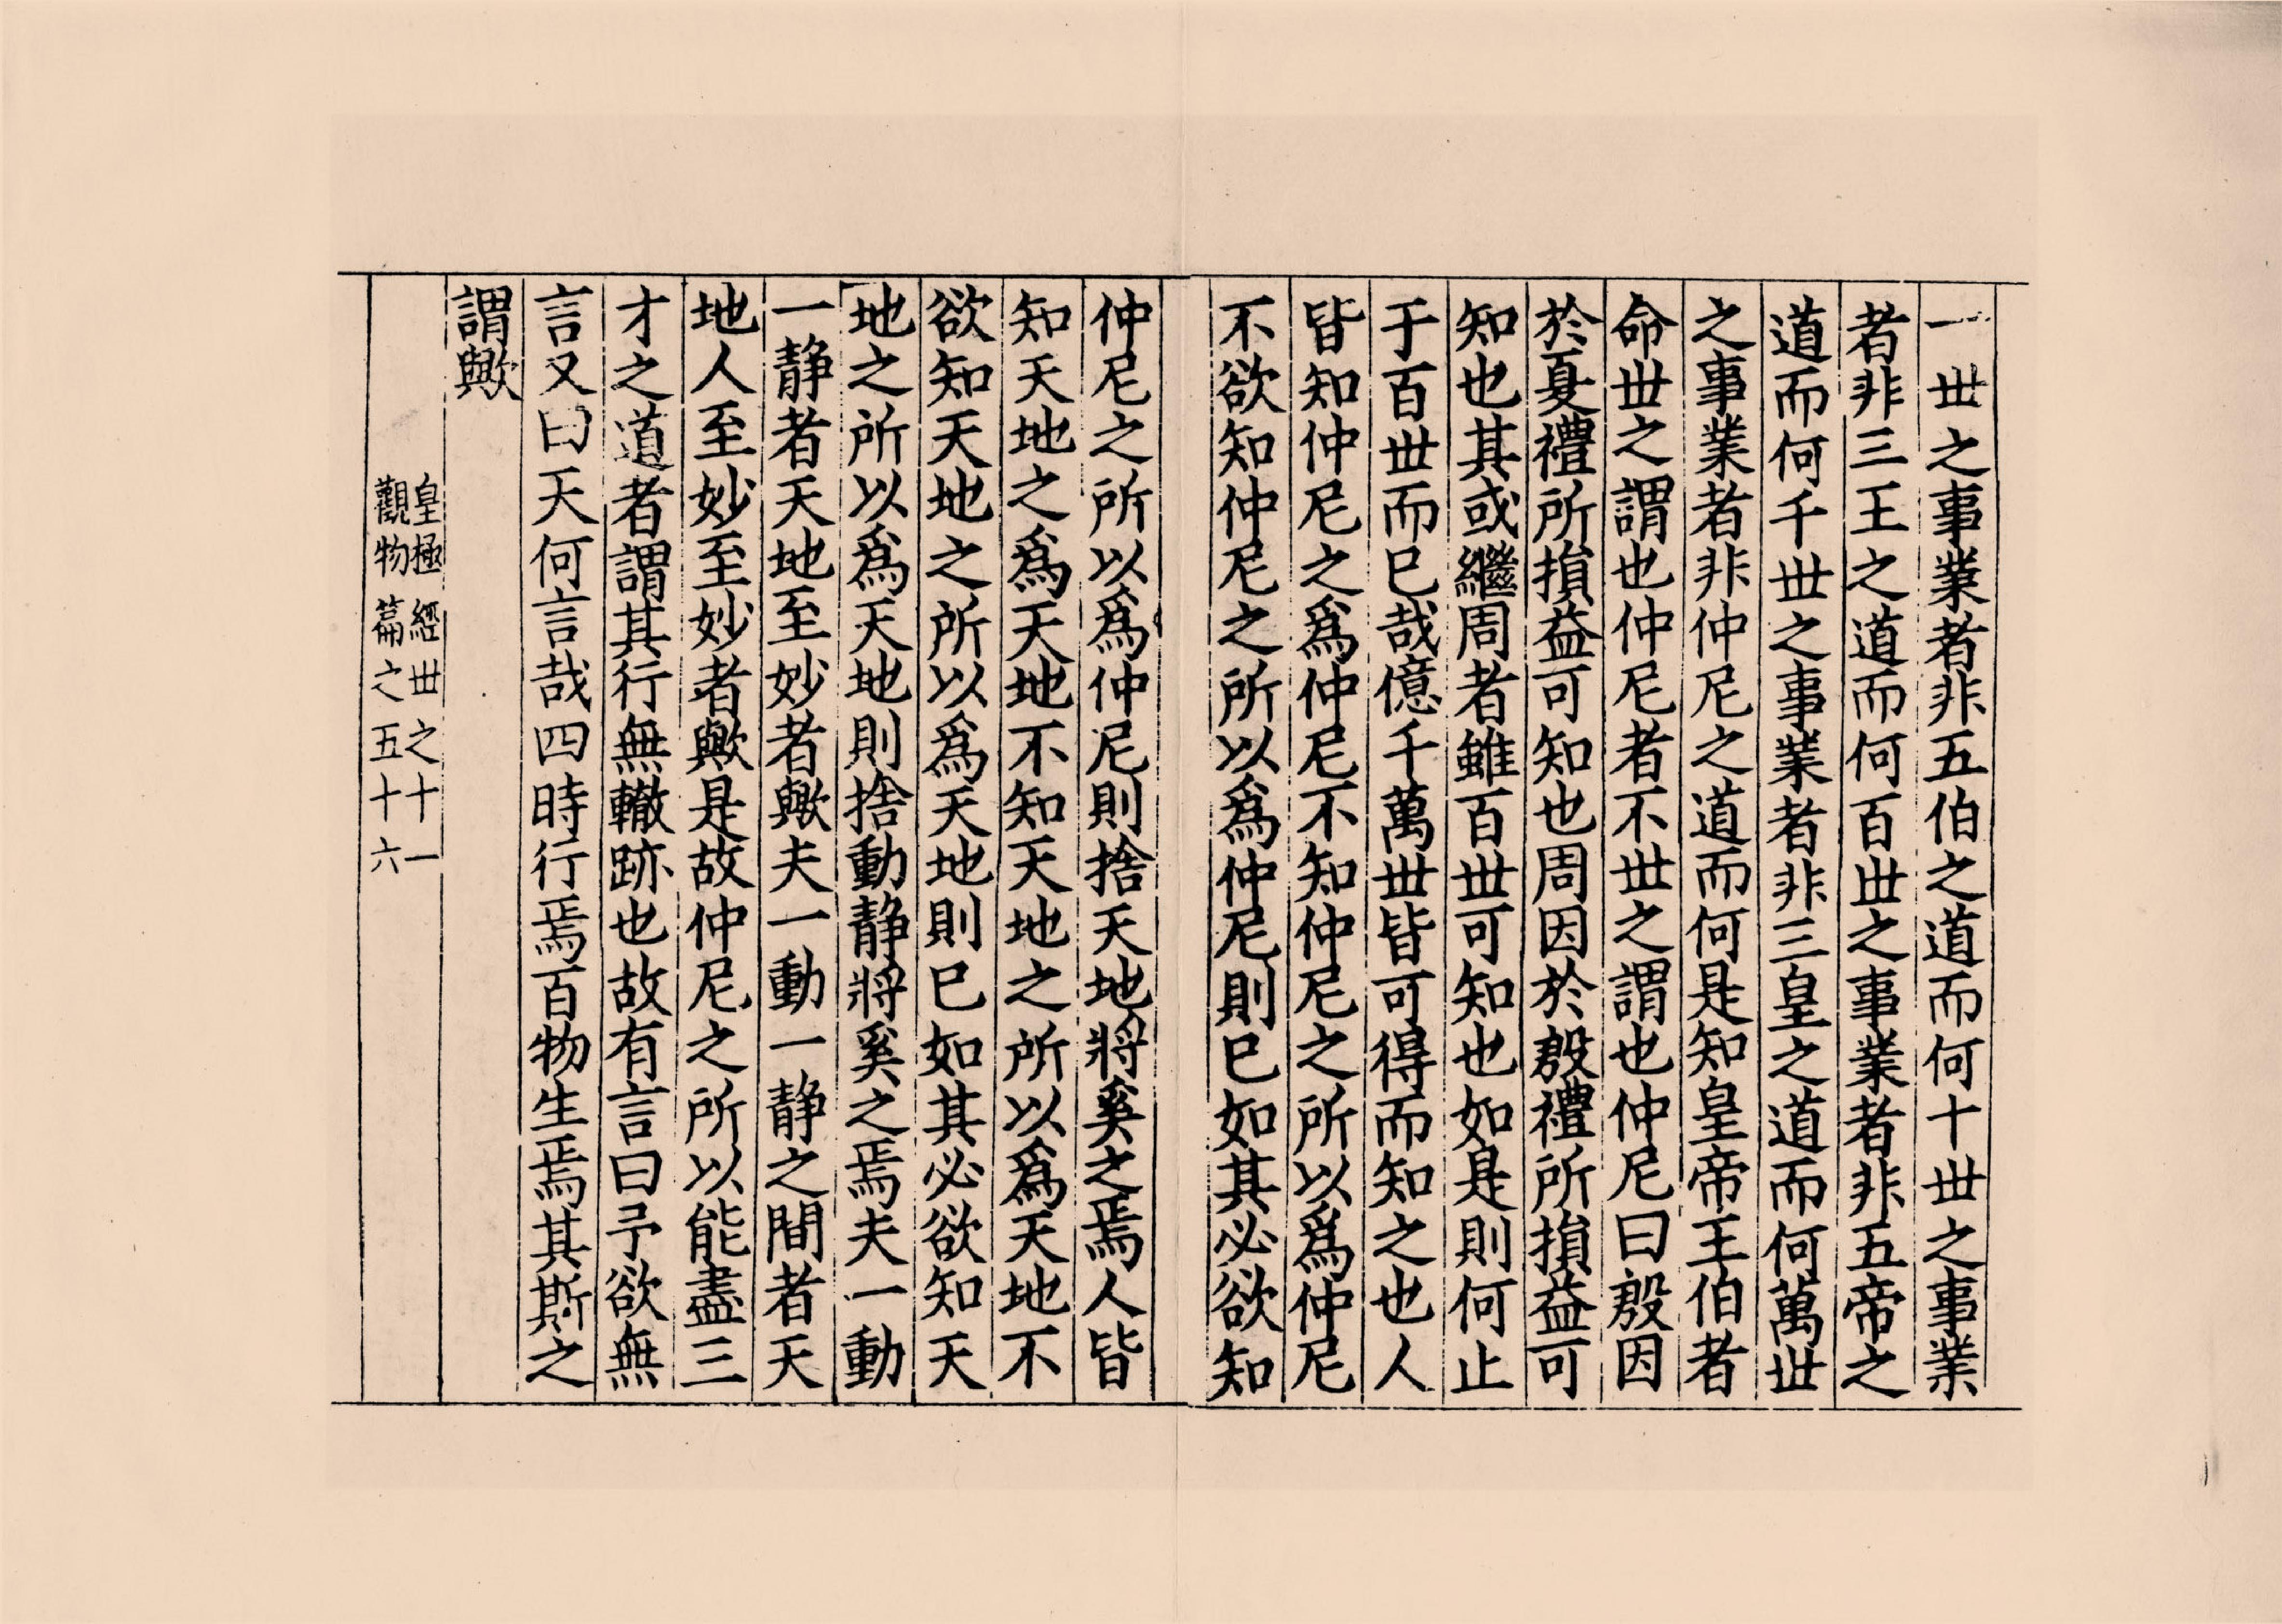 一世之事業者非五伯之道而何十世之事業
者非三王之道而何百世之事業者非五帝之
道而何千世之事業者非三皇之道而何萬世
之事業者非仲尼之道而何是知皇帝王伯者
命世之謂也仲尼者不世之謂也仲尼曰殷因
於夏禮所損益可知也周因於殷禮所損益可
知也其或繼周者雖百世可知也如是則何止
于百世而已哉億千萬世皆可得而知之也人
皆知仲尼之爲仲尼不知仲尼之所以爲仲尼
不欲知仲尼之所以爲仲尼則已如其必欲知
仲尼之所以爲仲尼則捨天地將奚之焉人皆
知天地之爲天地不知天地之所以爲天地不
欲知天地之所以爲天地則已如其必欲知天
地之所以爲天地則捨動静將奚之焉夫一動
一静者天地至妙者歟夫一動一静之間者天
地人至妙至妙者歟是故仲尼之所以能盡三
才之道者謂其行無轍跡也故有言曰予欲無
言又曰天何言哉四時行焉百物生焉其斯之
謂歟
皇極經世之十一
觀物篇之五十六